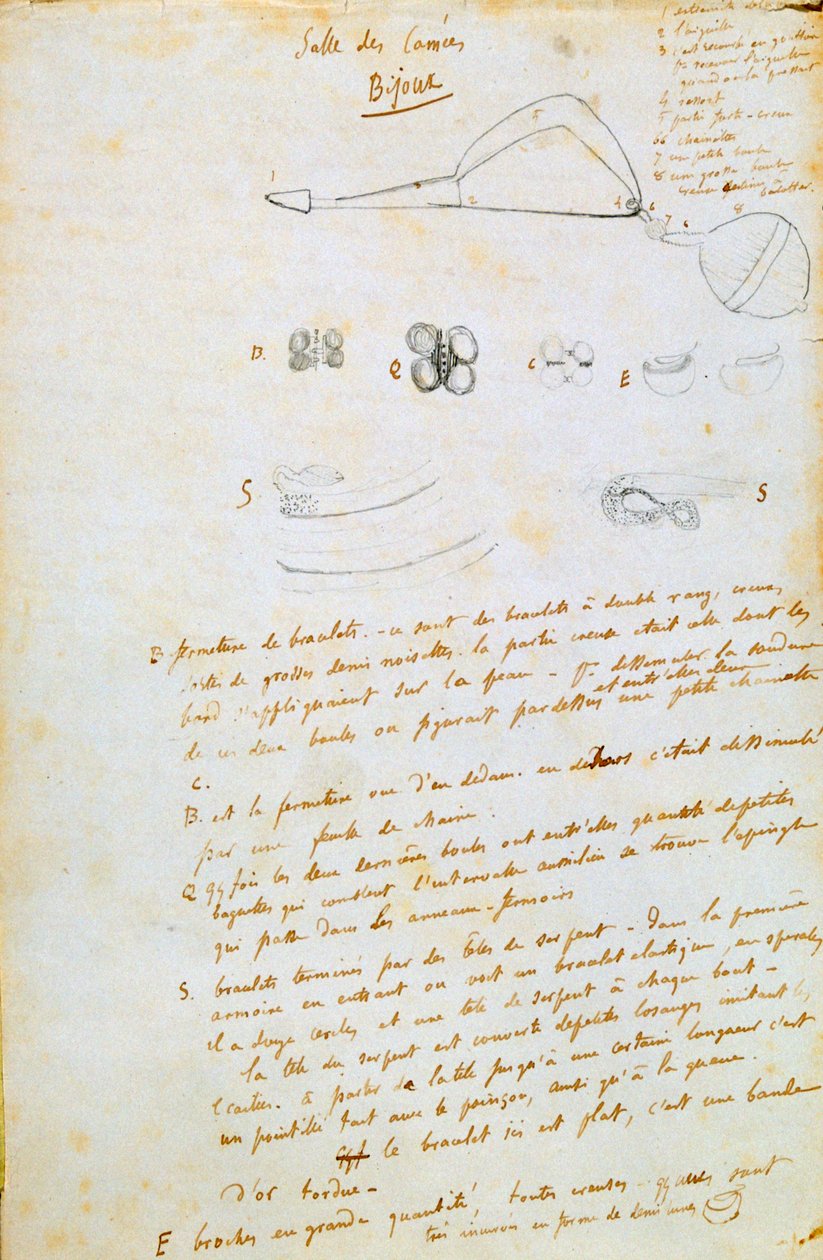 Salle des Camées
Bijoux
1 extremité de
2 l'aiguille
3 c'est recourbé en gouttière
pr recevoir l'aiguille
quand on la pressait
4 ressort
5 partie forte - creux
66 chainettes
7 une petite boule
8 une grosse boule
creuse destinée à balotter.
1
5
3
2
4
6
7
6
8
B.
Q
C
E
S
S
B fermeture de bracelets. - ce sont des bracelets à double rang, creux,
sortes de grosses demis noisettes. la partie creuse était celle dont les
bord s'appliquaient sur la peau - pr dissimuler la soudure
et entr'elles deux
de ces deux boules on figurait par dessus une petite chainette
C.
B. est la fermeture vue d'en dedans. en dehors c'était dissimulé
par une feuille de chaine.
Q qqfois les deux dernières boules ont entr'elles quantité de petites
baguettes qui comblent l'intervalle au milieu se trouve l'épingle
qui passe dans les anneaux-fermoirs
S. bracelets terminés par des têtes de serpent - Dans la première
armoire en entrant on voit un bracelet élastique, en spirales
il a douze cercles et une tête de serpent à chaque bout -
la tête du serpent est couverte de petites losanges imitant les
écailles. à partir de la tête jusqu'à une certaine longueur c'est
un pointillé fait avec le poinçon, ainsi qu'à la queue.
le bracelet ici est plat, c'est une bande
D'or tordue -
E broches en grande quantité, toutes creuses - qq unes sont
très incurvés en forme de demi lunes